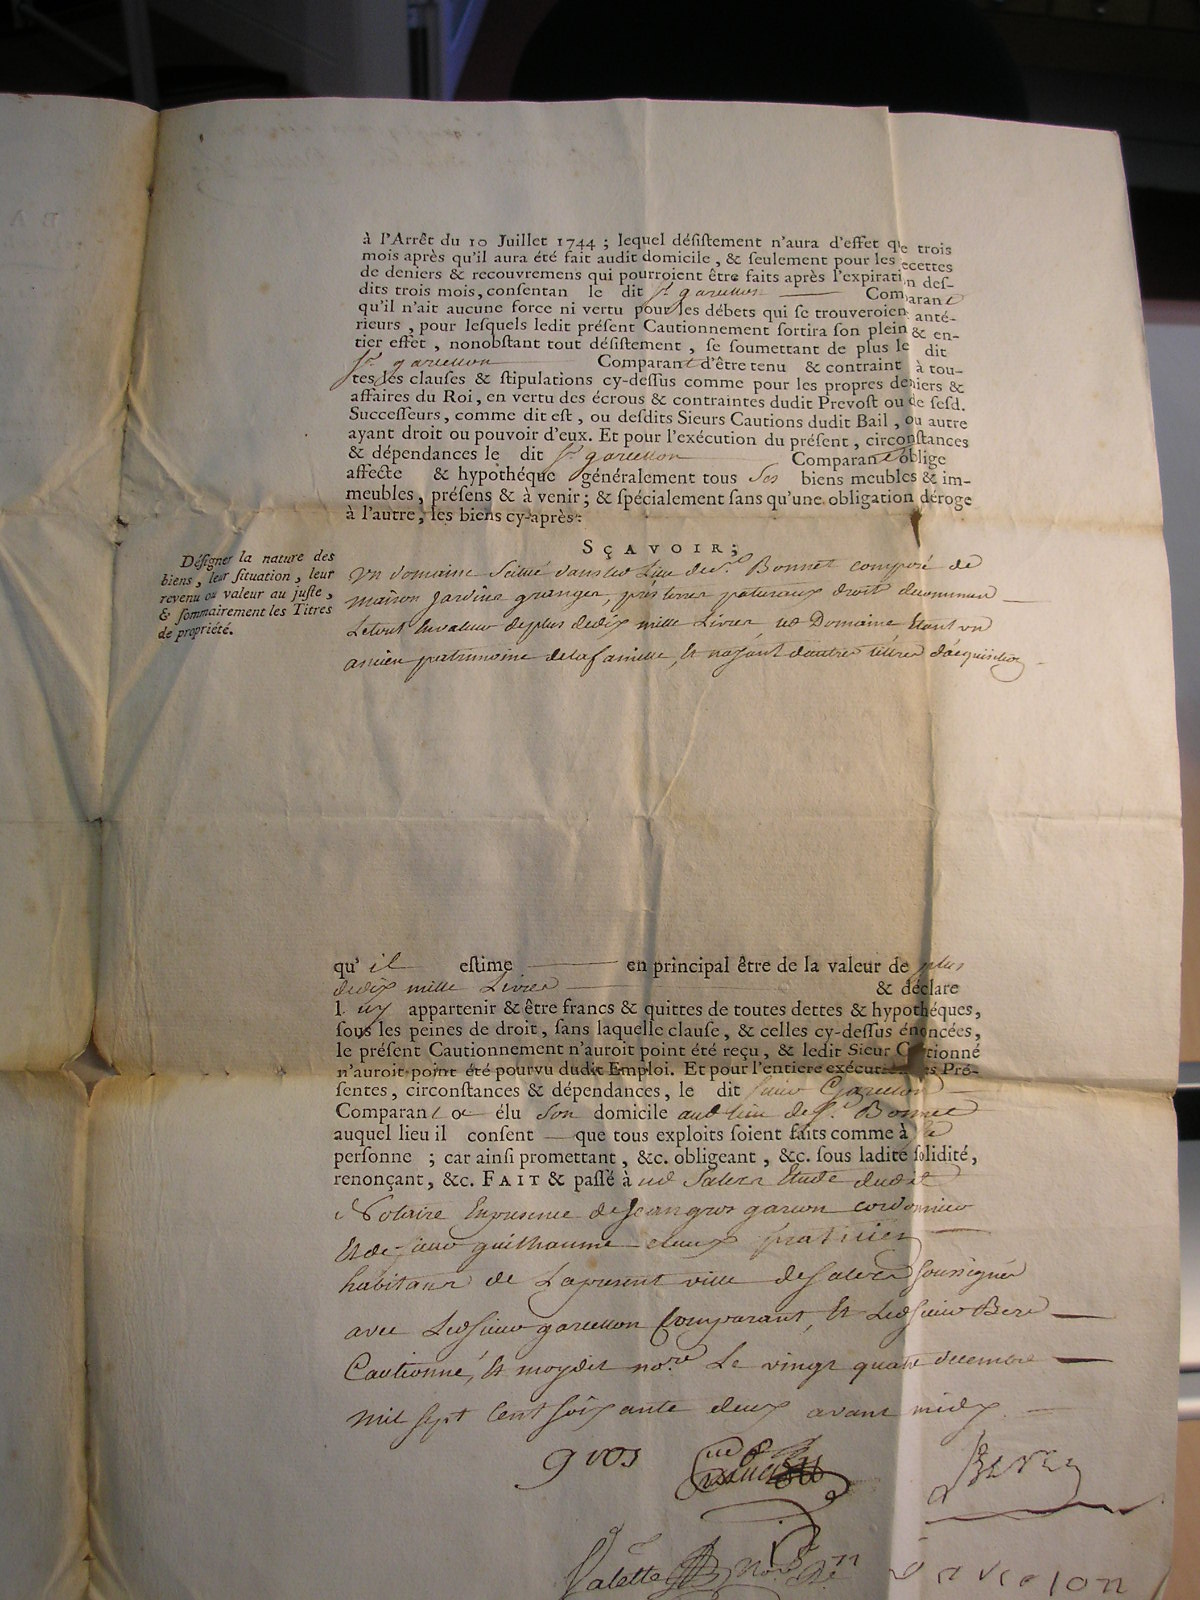 à l'Arrêt du 10 Juillet 1744 ; lequel désistement n'aura d'effet que trois
mois après qu'il aura été fait audit domicile, & seulement pour les recettes
de deniers & recouvremens qui pourroient être faits après l'expiration des-
dits trois mois, consentan le dit Sr. garcellon Comparant
qu'il n'ait aucune force ni vertu pour les débets qui se trouveroient anté-
rieurs, pour lesquels ledit présent Cautionnement sortira son plein & en-
tier effet, nonobstant tout désistement, se soumettant de plus le dit
Sr. garcellon Comparant d'être tenu & contraint à tou-
tes les clauses & stipulations cy-dessus comme pour les propres deniers &
affaires du Roi, en vertu des écrous & contraintes dudit Prevost ou de sesd.
Successeurs, comme dit est, ou desdits Sieurs Cautions dudit Bail, ou autre
ayant droit ou pouvoir d'eux. Et pour l'exécution du présent, circonstances
& dépendances le dit Sr. garcellon Comparant oblige
affecte & hypothéque généralement tous ses biens meubles & im-
meubles, présens & à venir ; & spécialement sans qu'une obligation déroge
à l'autre, les biens cy-après :
SÇAVOIR ;
Désigner la nature des
biens, leur situation, leur
revenu ou valeur au juste,
& sommairement les Titres
de propriété.
un domaine scitué Lieu de St. Bonnet composé de
maison jardins granges, prés terres paturaux droit de commun
Letout de plus dedix mille Livres Domaine Etant un
ancien patrimoine delafamille, Et nayant dautres tiltres dacquisition
qu'il estime en principal être de la valeur de plus
dedix mille Livres & déclare
luy appartenir & être francs & quittes de toutes dettes & hypothéques,
sous les peines de droit, sans laquelle clause, & celles cy-dessus énoncées,
le présent Cautionnement n'auroit point été reçu, & ledit Sieur Cautionné
n'auroit point été pourvu dudit Emploi. Et pour l'entiere exécution des Pré-
sentes, circonstances & dépendances, le dit sieur Garcellon
Comparant a élu son domicile aud lieu de St. Bonnet
auquel lieu il consent que tous exploits soient faits comme à sa
personne ; car ainsi promettant, &c. obligeant, &c. sous ladite solidité,
renonçant, &c. FAIT & passé à Salers Etude dudit
Notaire Enpresence de Jean gros garcon cordonnier
Et de sieur guilhaume praticien
habitans de Lapresent ville deSalers soussignés
avec Ledsieur garcellon Comparant, Et Ledsieur Bere
Cautionné, Et moydit nore. Le vingt quatre decembre
mil sept cent soixante deux avant midy
gros
Valette